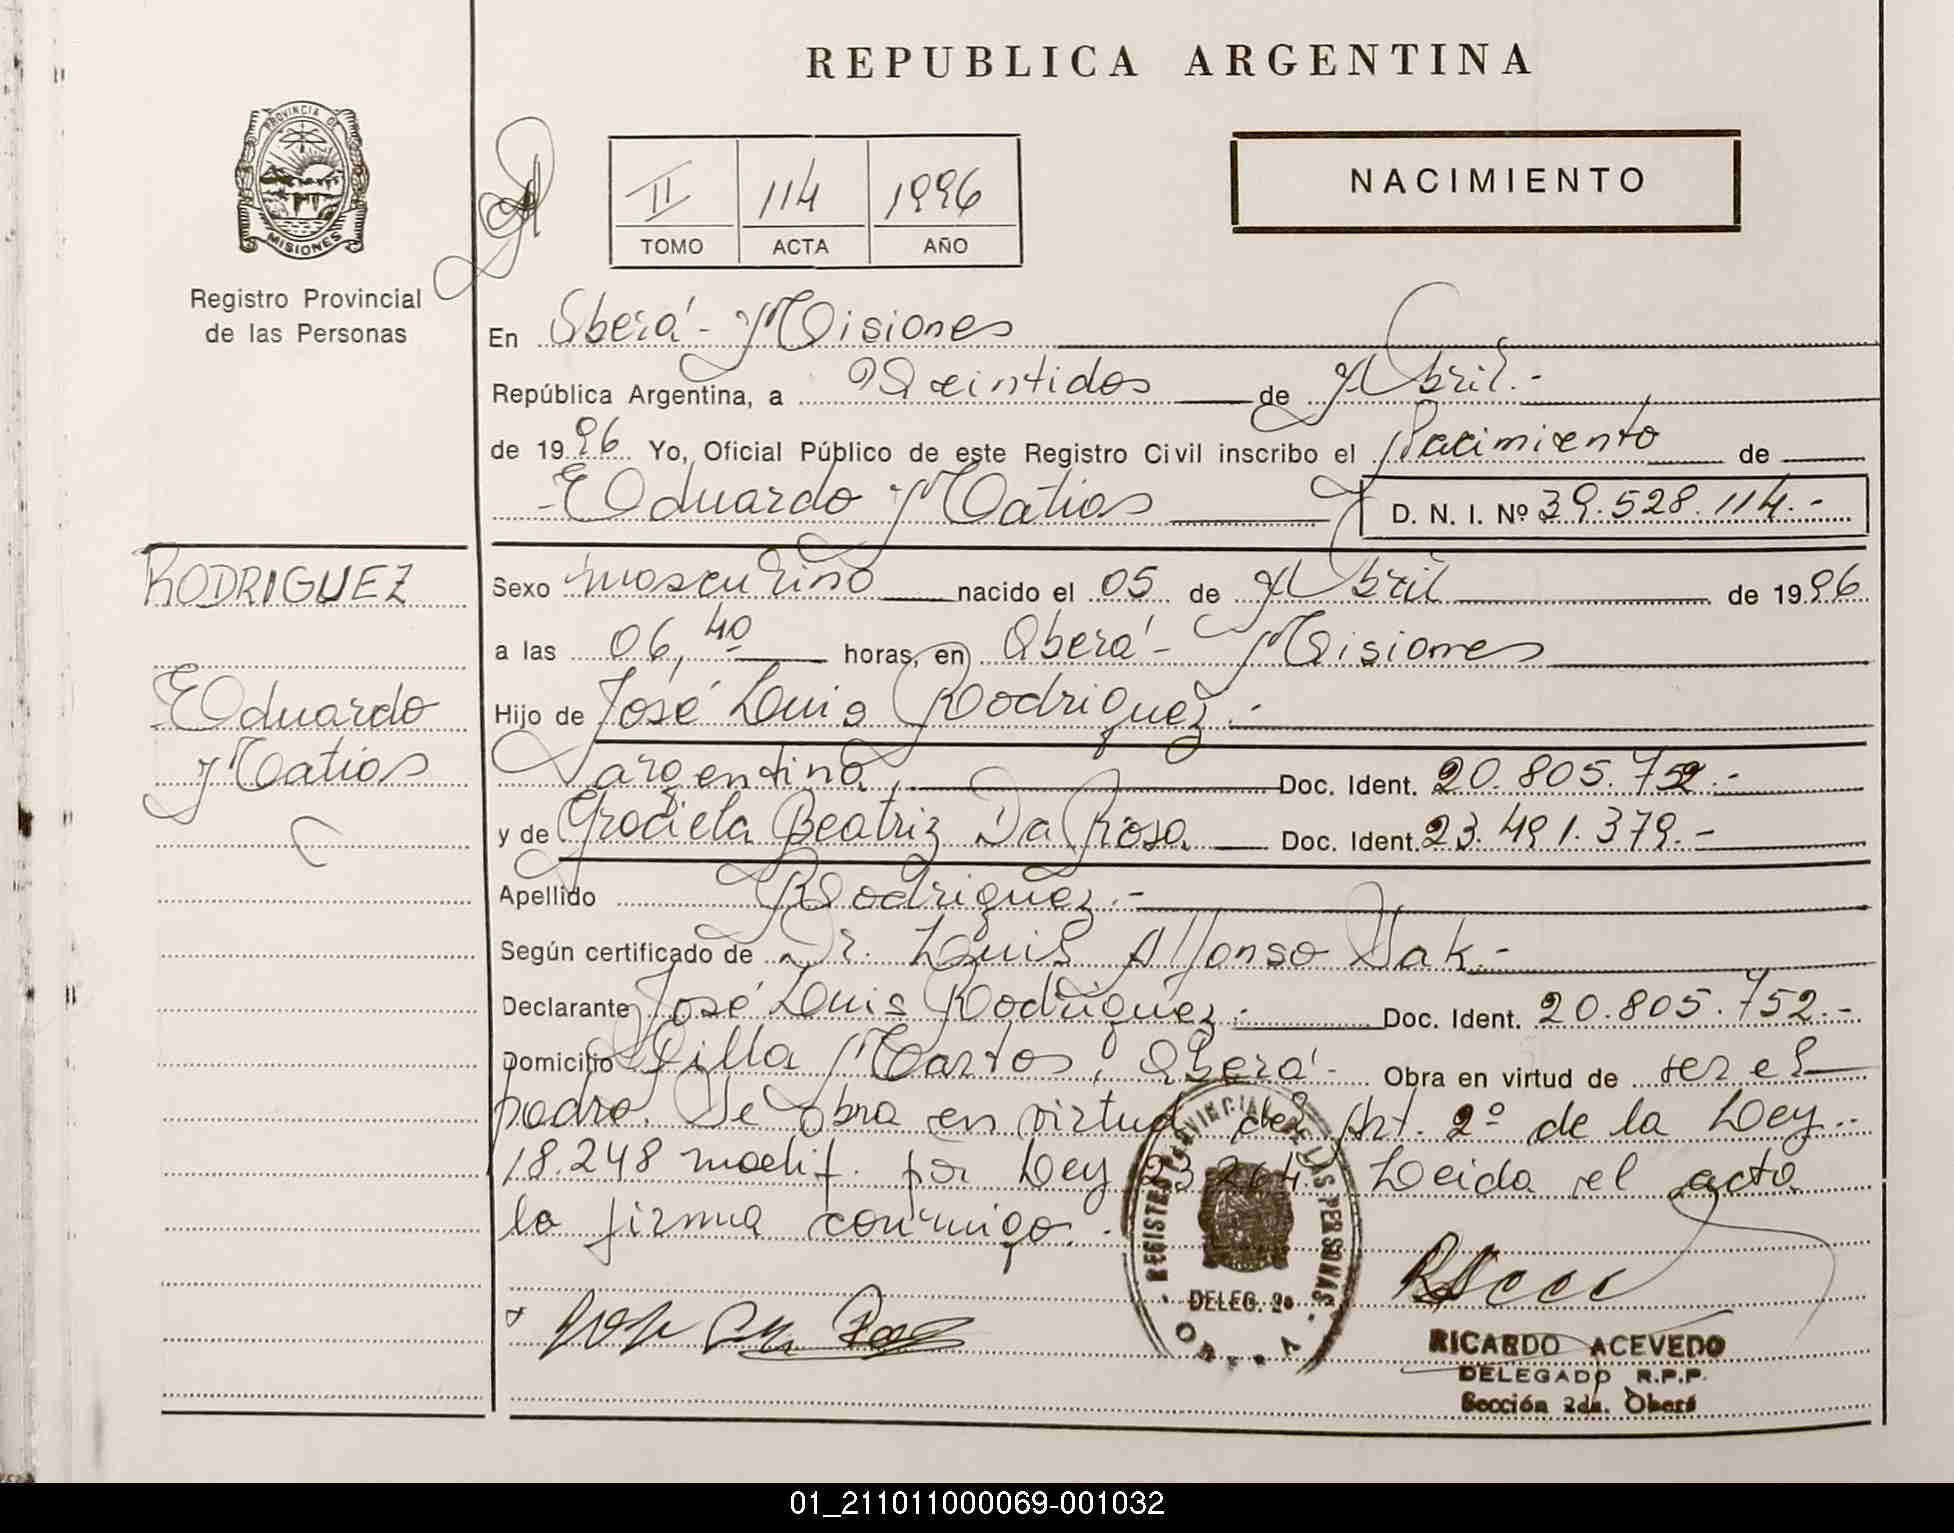 REPUBLICA ARGENTINA
PROVINCIA DE
MISIONES
Registro Provincial
de las Personas
II 114 1996
TOMO ACTA AÑO
NACIMIENTO
En Oberá - Misiones
República Argentina, a Veintidos de Abril.-
de 1996 Yo, Oficial Público de este Registro Civil inscribo el Nacimiento de
- Eduardo Matias D. N. I. Nº 39.528.114.-
RODRIGUEZ
Eduardo
Matias
Sexo masculino nacido el 05 de Abril de 1996
a las 06,40 horas, en Oberá - Misiones
Hijo de José Luis Rodriguez.-
argentina, Doc. Ident. 20.805.752.-
y de Graciela Beatriz Da Rosa Doc. Ident. 23.491.379.-
Apellido Rodriguez.-
Según certificado de Dr. Luis Alfonso Dak.-
Declarante José Luis Rodriguez.- Doc. Ident. 20.805.752.-
Domicilio Villa Martos, Oberá - Obra en virtud de ser el
padre. Se obra en virtud del Art. 2º de la Ley.-
18.248 modif. por Ley 23.264 Leida el acta
la firma conmigo.-
REGISTRO PROVINCIAL DE LAS PERSONAS
DELEG. 2a
RICARDO ACEVEDO
DELEGADO R.P.P.
Sección 2da. Oberá
01_211011000069-001032